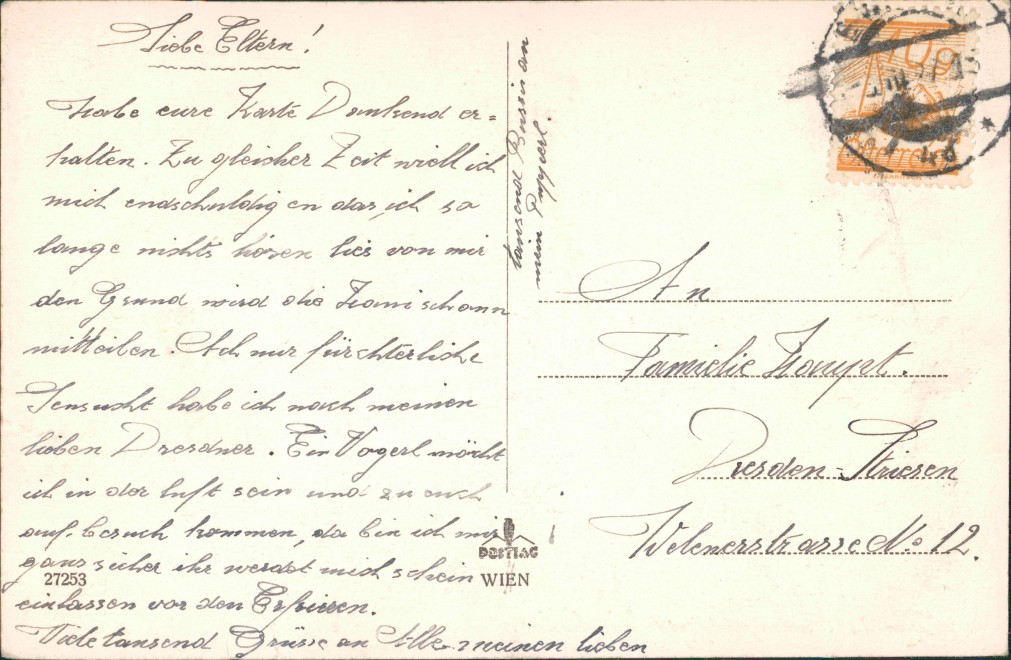 Liebe Eltern!
Habe eure Karte Dankend er=
halten. Zu gleicher Zeit will ich
mich endschuldigen das, ich so
lange nichts hören lies von mir
den Grund wird die Hani schonn
mitteilen. Ach nur fürchterliche
Sensucht habe ich nach meinen
lieben Dresdner. Ein Vogerl möcht
ich in der luft sein und zu euch
auf besuch kommen, da bin ich mir
gans sicher ihr werdet mich schein
einlassen vor den Erfrieren.
Viele tausend Grüsse an Alle meinen lieben
tausend Bussis an
mein Pupperl.
10g
Österreich
An
Familie Haupt.
Dresden-Striesen
Welenerstrasse No 12.
POSTIAG
27253
WIEN